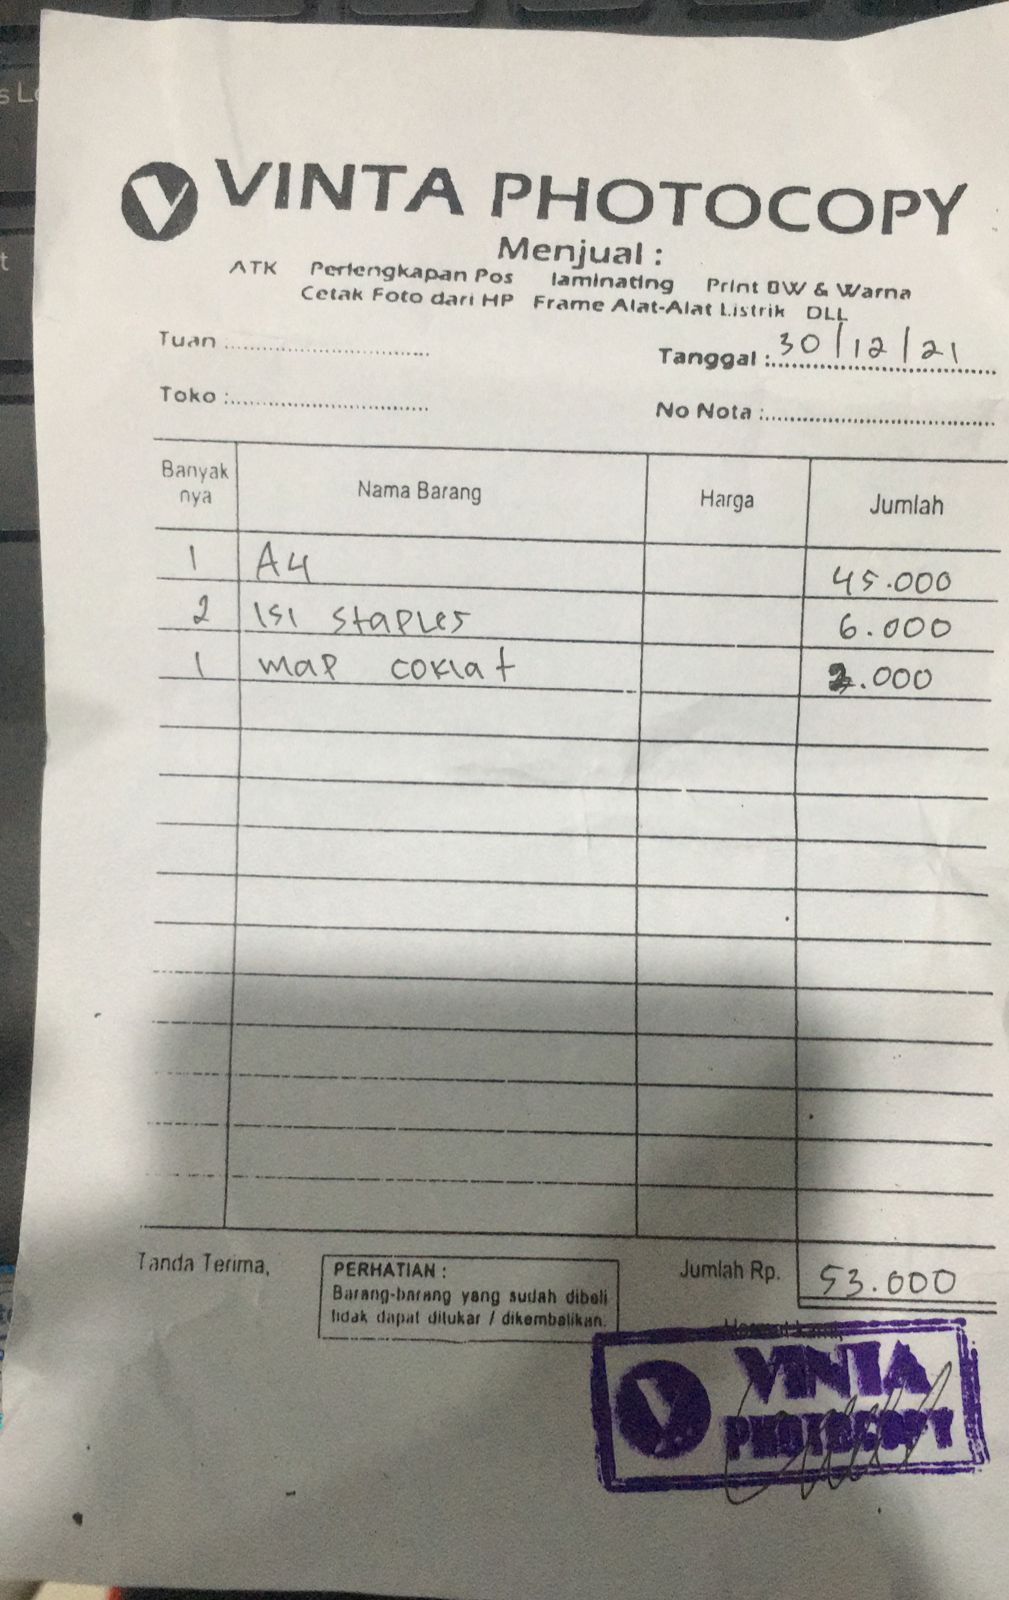 VINTA PHOTOCOPY
Menjual :
ATK Perlengkapan Pos laminating Print BW & Warna
Cetak Foto dari HP Frame Alat-Alat Listrik DLL
Tuan :
Tanggal : 30/12/21
Toko :
No Nota :
Banyak nya Nama Barang Harga Jumlah
1 A4 45.000
2 Isi staples 6.000
1 map coklat 2.000
Tanda Terima,
PERHATIAN :
Barang-barang yang sudah dibeli
tidak dapat ditukar / dikembalikan.
Jumlah Rp. 53.000
VINTA
PHOTOCOPY